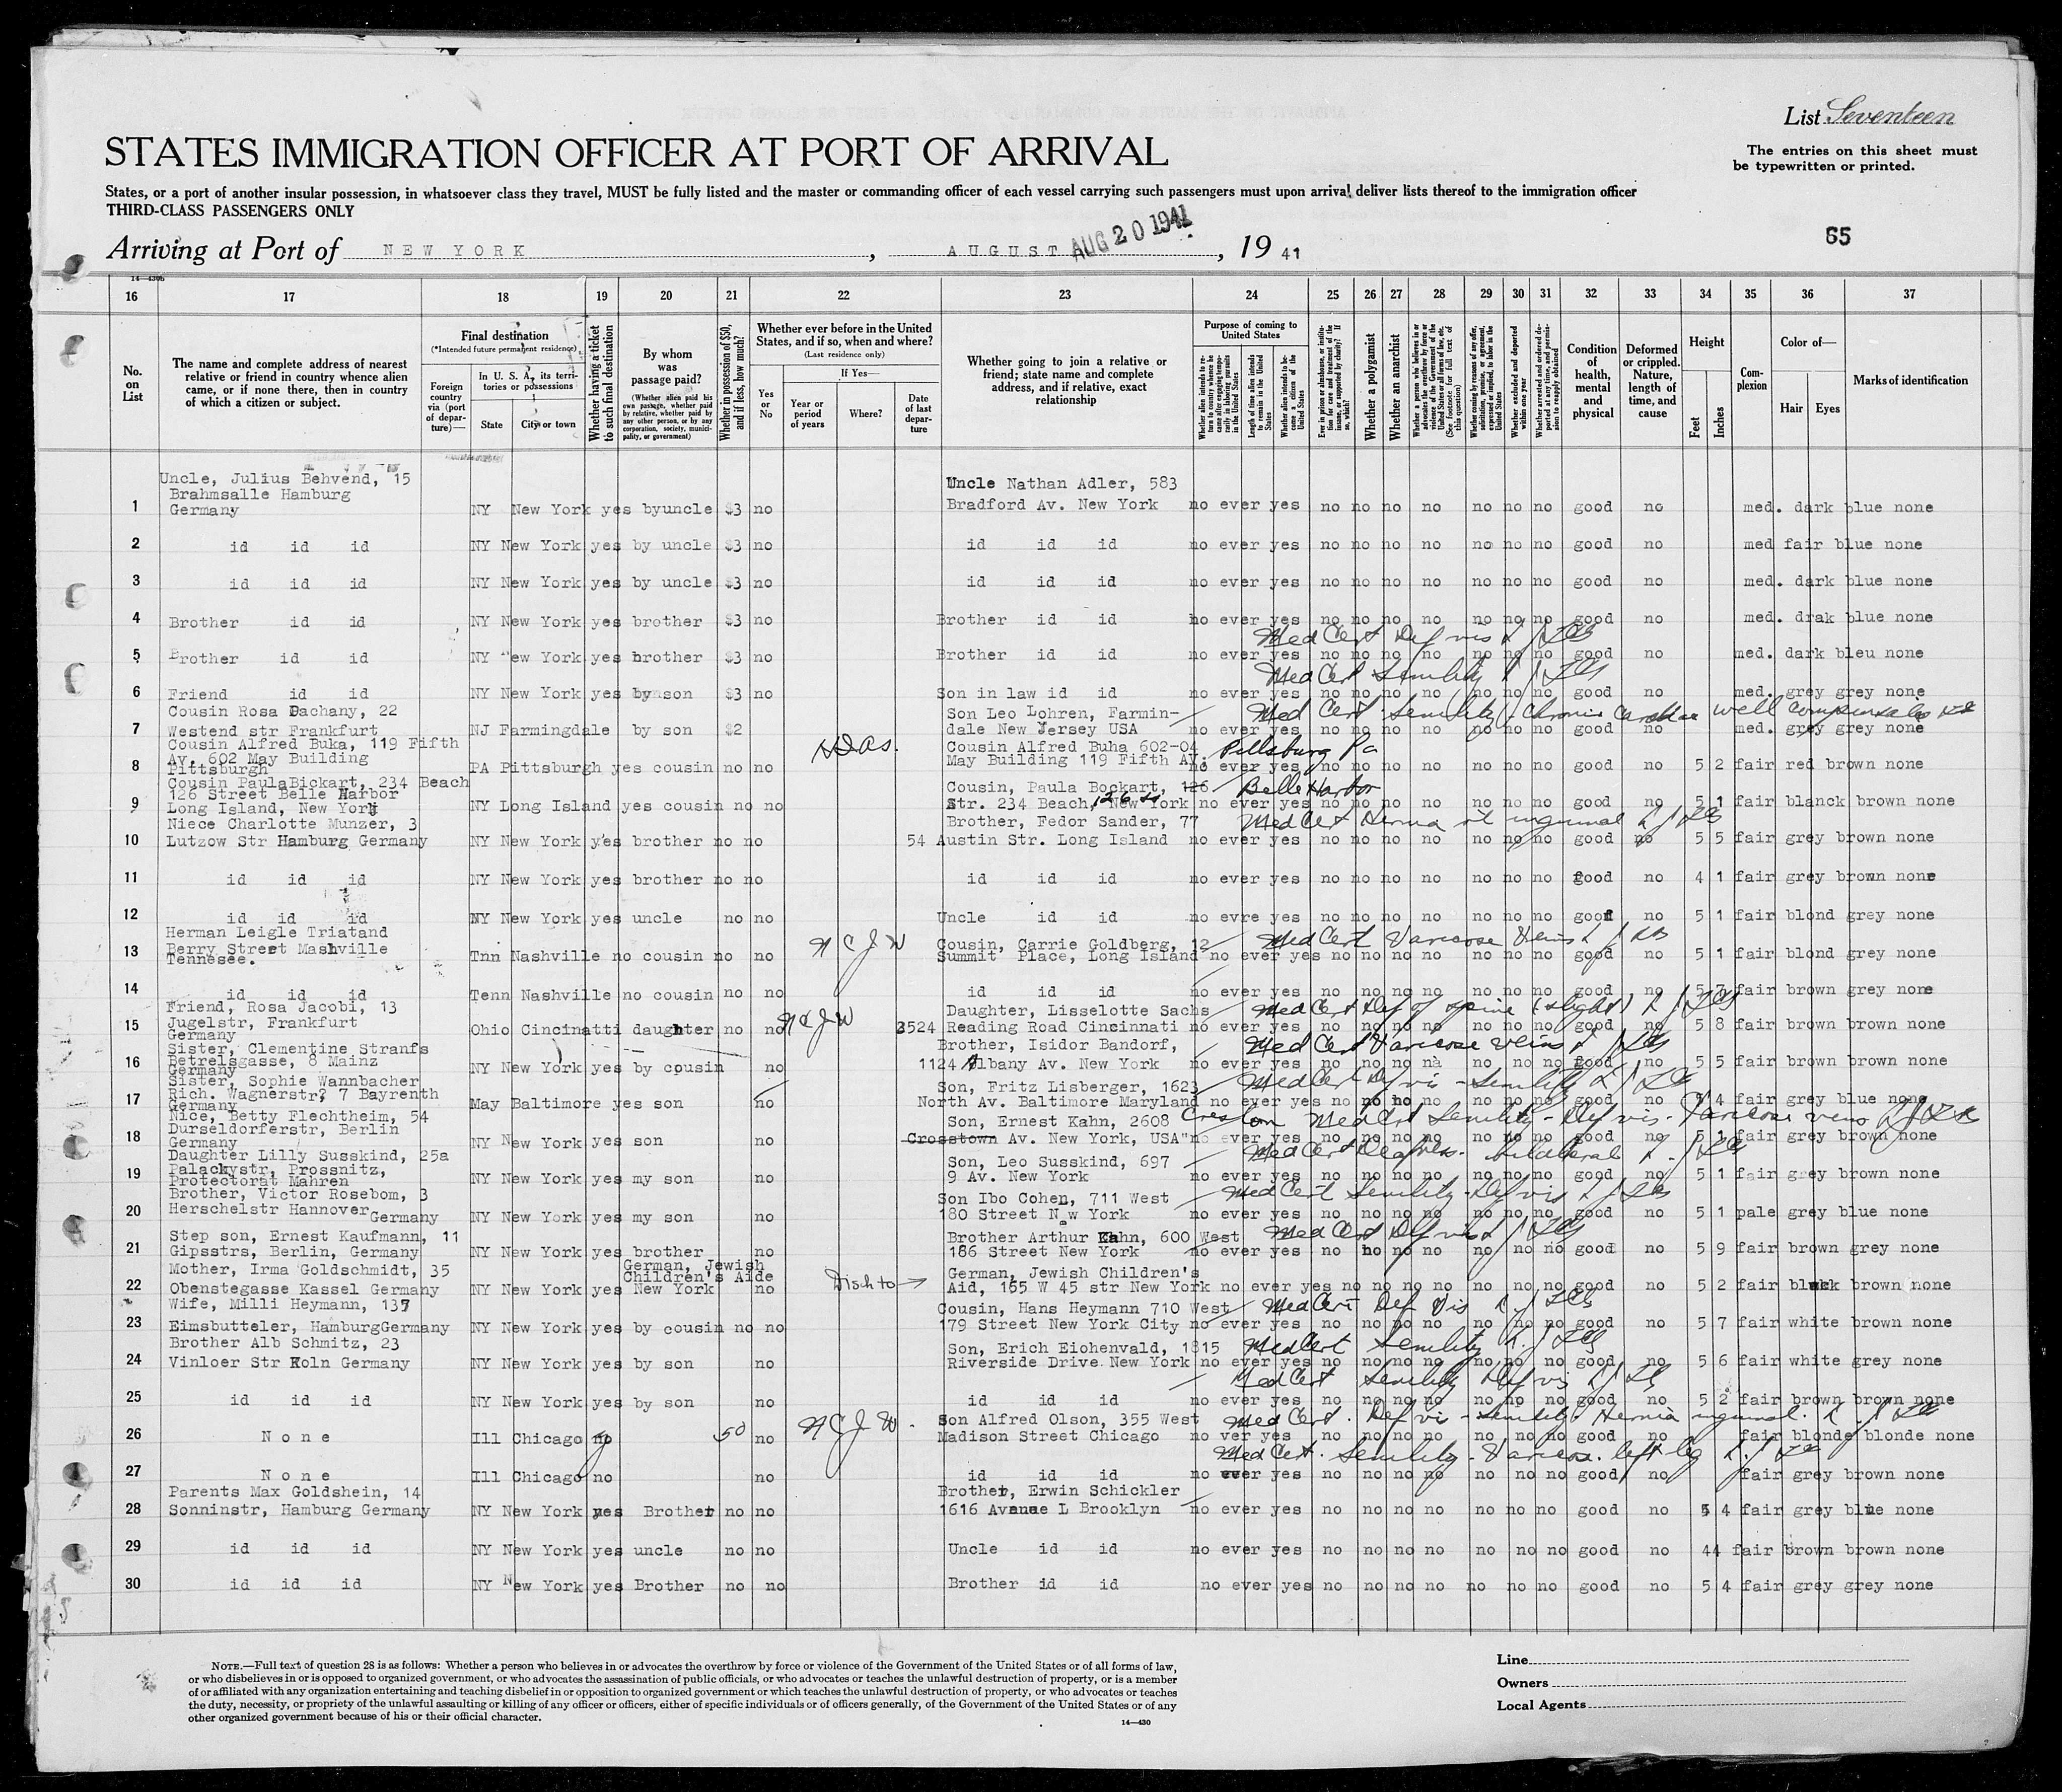 List Seventeen
STATES IMMIGRATION OFFICER AT PORT OF ARRIVAL
The entries on this sheet must
be typewritten or printed.
States, or a port of another insular possession, in whatsoever class they travel, MUST be fully listed and the master or commanding officer of each vessel carrying such passengers must upon arrival deliver lists thereof to the immigration officer
THIRD-CLASS PASSENGERS ONLY
65
Arriving at Port of NEW YORK, AUGUST AUG 20 1941, 19 41
14—430b
16 17 18 19 20 21 22 23 24 25 26 27 28 29 30 31 32 33 34 35 36 37
No. on List
The name and complete address of nearest relative or friend in country whence alien came, or if none there, then in country of which a citizen or subject.
Final destination
(*Intended future permanent residence)
Foreign country via (port of departure)—
In U. S. A., its territories or possessions
State
City or town
Whether having a ticket to such final destination
By whom was passage paid?
(Whether alien paid his own passage, whether paid by relative, whether paid by any other person, or by any corporation, society, municipality, or government)
Whether in possession of $50, and if less, how much?
Whether ever before in the United States, and if so, when and where?
(Last residence only)
Yes or No
If Yes—
Year or period of years
Where?
Date of last departure
Whether going to join a relative or friend; state name and complete address, and if relative, exact relationship
Purpose of coming to United States
Whether a polygamist
Whether an anarchist
Condition of health, mental and physical
Deformed or crippled. Nature, length of time, and cause
Height
Feet
Inches
Complexion
Color of—
Hair
Eyes
Marks of identification
Uncle, Julius Behvend, 15
Brahmsalle Hamburg
Uncle Nathan Adler, 583
1 Germany NY New York yes byuncle $3 no Bradford Av. New York no ever yes no no no no no no no good no med. dark blue none
2 id id id NY New York yes by uncle $3 no id id id no ever yes no no no no no no no good no med fair blue none
3 id id id NY New York yes by uncle $3 no id id id no ever yes no no no no no no no good no med. dark blue none
4 Brother id id NY New York yes brother $3 no Brother id id no ever yes no no no no no no no good no med. drak blue none
Med Cert Def vis
5 Brother id id NY ew York yes brother $3 no Brother id id no ever yes no no no no no no no good no med. dark bleu none
Med Cert Senility
6 Friend id id NY New York yes by son $3 no Son in law id id no ever yes no no no no no no no good no med. grey grey none
Cousin Rosa Dachany, 22
Son Leo Lohren, Farmin-
Med Cert Senility Chronic Cardiac well compensated
7 Westend str Frankfurt NJ Farmingdale by son $2 dale New Jersey USA no ever yes no no no no no no no good no med. grey grey none
Cousin Alfred Buka, 119 Fifth
Av. 602 May Building
Cousin Alfred Buha 602-04
Pittsburg Pa
8 Pittsburgh PA Pittsburgh yes cousin no no May Building 119 Fifth AV. no ever yes no no no no no no no good no 5 2 fair red brown none
Cousin PaulaBickart, 234 Beach
126 Street Belle Harbor
Cousin, Paula Bockart, 126
Belle Harbor
9 Long Island, New York NY Long Island yes cousin no no Str. 234 Beach, New York no ever yes no no no no no no no good no 5 1 fair blanck brown none
Niece Charlotte Munzer, 3
Brother, Fedor Sander, 77
Med Cert Hernia rt inguinal
10 Lutzow Str Hamburg Germany NY New York yes brother no no 54 Austin Str. Long Island no ever yes no no no no no no no good no 5 5 fair grey brown none
11 id id id NY New York yes brother no no id id id no ever yes no no no no no no no good no 4 1 fair grey brown none
12 id id id NY New York yes uncle no no Uncle id id no evre yes no no no no no no no good no 5 1 fair blond grey none
Herman Leigle Triatand
Berry Street Mashville
N C J W
Cousin, Carrie Goldberg, 12
Med Cert Varicose Veins
13 Tennesee. Tnn Nashville no cousin no no Summit Place, Long Island no ever yes no no no no no no no good no 5 1 fair blond grey none
14 id id id Tenn Nashville no cousin no no id id id no ever yes no no no no no no no good no 5 7 fair brown grey none
Friend, Rosa Jacobi, 13
Jugelstr, Frankfurt
Daughter, Lisselotte Sachs
Med Cert Def of spine (slight)
15 Germany Ohio Cincinatti daughter no no N C J W 3524 Reading Road Cincinnati no ever yes no no no no no no no good no 5 8 fair brown brown none
Sister, Clementine Stranfs
Betrelsgasse, 8 Mainz
Brother, Isidor Bandorf,
Med Cert Varicose Veins
16 Germany NY New York yes by cousin no 1124 Albany Av. New York no ever yes no no no na no no no good no 5 5 fair brown brown none
Sister, Sophie Wannbacher
Rich. Wagnerstr, 7 Bayrenth
Son, Fritz Lisberger, 1623
Med Cert Def vis - Senility
17 Germany May Baltimore yes son no North Av. Baltimore Maryland no ever yes no no no no no no no good no 5 4 fair grey blue none
Nice, Betty Flechtheim, 54
Durseldorferstr, Berlin
Son, Ernest Kahn, 2608 Creston
Med Cert Senility - Def vis - Varicose veins
18 Germany NY New York yes son no Crosstown Av. New York, USA" no ever yes no no no no no no no good no 5 1 fair grey brown none
Daughter Lilly Susskind, 25a
Palackystr, Prossnitz,
Son, Leo Susskind, 697
Med Cert Deafness - bilateral
19 Protectorat Mahren NY New York yes my son no 9 Av. New York no ever yes no no no no no no no good no 5 1 fair grey brown none
Brother, Victor Rosebom, 3
Son Ibo Cohen, 711 West
Med Cert Senility - Def vis
20 Herschelstr Hannover Germany NY New York yes my son no 180 Street New York no ever yes no no no no no no no good no 5 1 pale grey blue none
Step son, Ernest Kaufmann, 11
Brother Arthur Kahn, 600 West
Med Cert Def vis
21 Gipsstrs, Berlin, Germany NY New York yes brother no 186 Street New York no ever yes no no no no no no no good no 5 9 fair brown grey none
Mother, Irma Goldschmidt, 35
German, Jewish
Children's Aide
Disch to →
German, Jewish Children's
22 Obenstegasse Kassel Germany NY New York yes New York no Aid, 155 W 45 str New York no ever yes no no no no no no no good no 5 2 fair black brown none
Wife, Milli Heymann, 137
Cousin, Hans Heymann 710 West
Med Cert Def Vis
23 Eimsbutteler, HamburgGermany NY New York yes by cousin no no 179 Street New York City no ever yes no no no no no no no good no 5 7 fair white brown none
Brother Alb Schmitz, 23
Son, Erich Eichenvald, 1815
Med Cert Senility
24 Vinloer Str Koln Germany NY New York yes by son no Riverside Drive New York no ever yes no no no no no no no good no 5 6 fair white grey none
Med Cert Senility Def vis
25 id id id NY New York yes by son no id id id no ever yes no no no no no no no good no 5 2 fair brown brown none
N C J W
Son Alfred Olson, 355 West
Med Cert. Def vis - Senility Hernia inguinal
26 None Ill Chicago no 50 no Madison Street Chicago no ver yes no no no no no no no good no fair blonde blonde none
Med Cert. Senility - Varicose left leg
27 None Ill Chicago no no id id id no ever yes no no no no no no no good no fair grey brown none
Parents Max Goldshein, 14
Brother, Erwin Schickler
28 Sonninstr, Hamburg Germany NY New York yes Brother no no 1616 Avenue L Brooklyn no ever yes no no no no no no no good no 5 4 fair grey blue none
29 id id id NY New York yes uncle no no Uncle id id no ever yes no no no no no no no good no 44 fair brown brown none
30 id id id NY New York yes Brother no no Brother id id no ever yes no no no no no no no good no 5 4 fair grey grey none
NOTE.—Full text of question 28 is as follows: Whether a person who believes in or advocates the overthrow by force or violence of the Government of the United States or of all forms of law,
or who disbelieves in or is opposed to organized government, or who advocates the assassination of public officials, or who advocates or teaches the unlawful destruction of property, or is a member
of or affiliated with any organization entertaining and teaching disbelief in or opposition to organized government or which teaches the unlawful destruction of property, or who advocates or teaches
the duty, necessity, or propriety of the unlawful assaulting or killing of any officer or officers, either of specific individuals or of officers generally, of the Government of the United States or of any
other organized government because of his or their official character.
14—430
Line
Owners
Local Agents